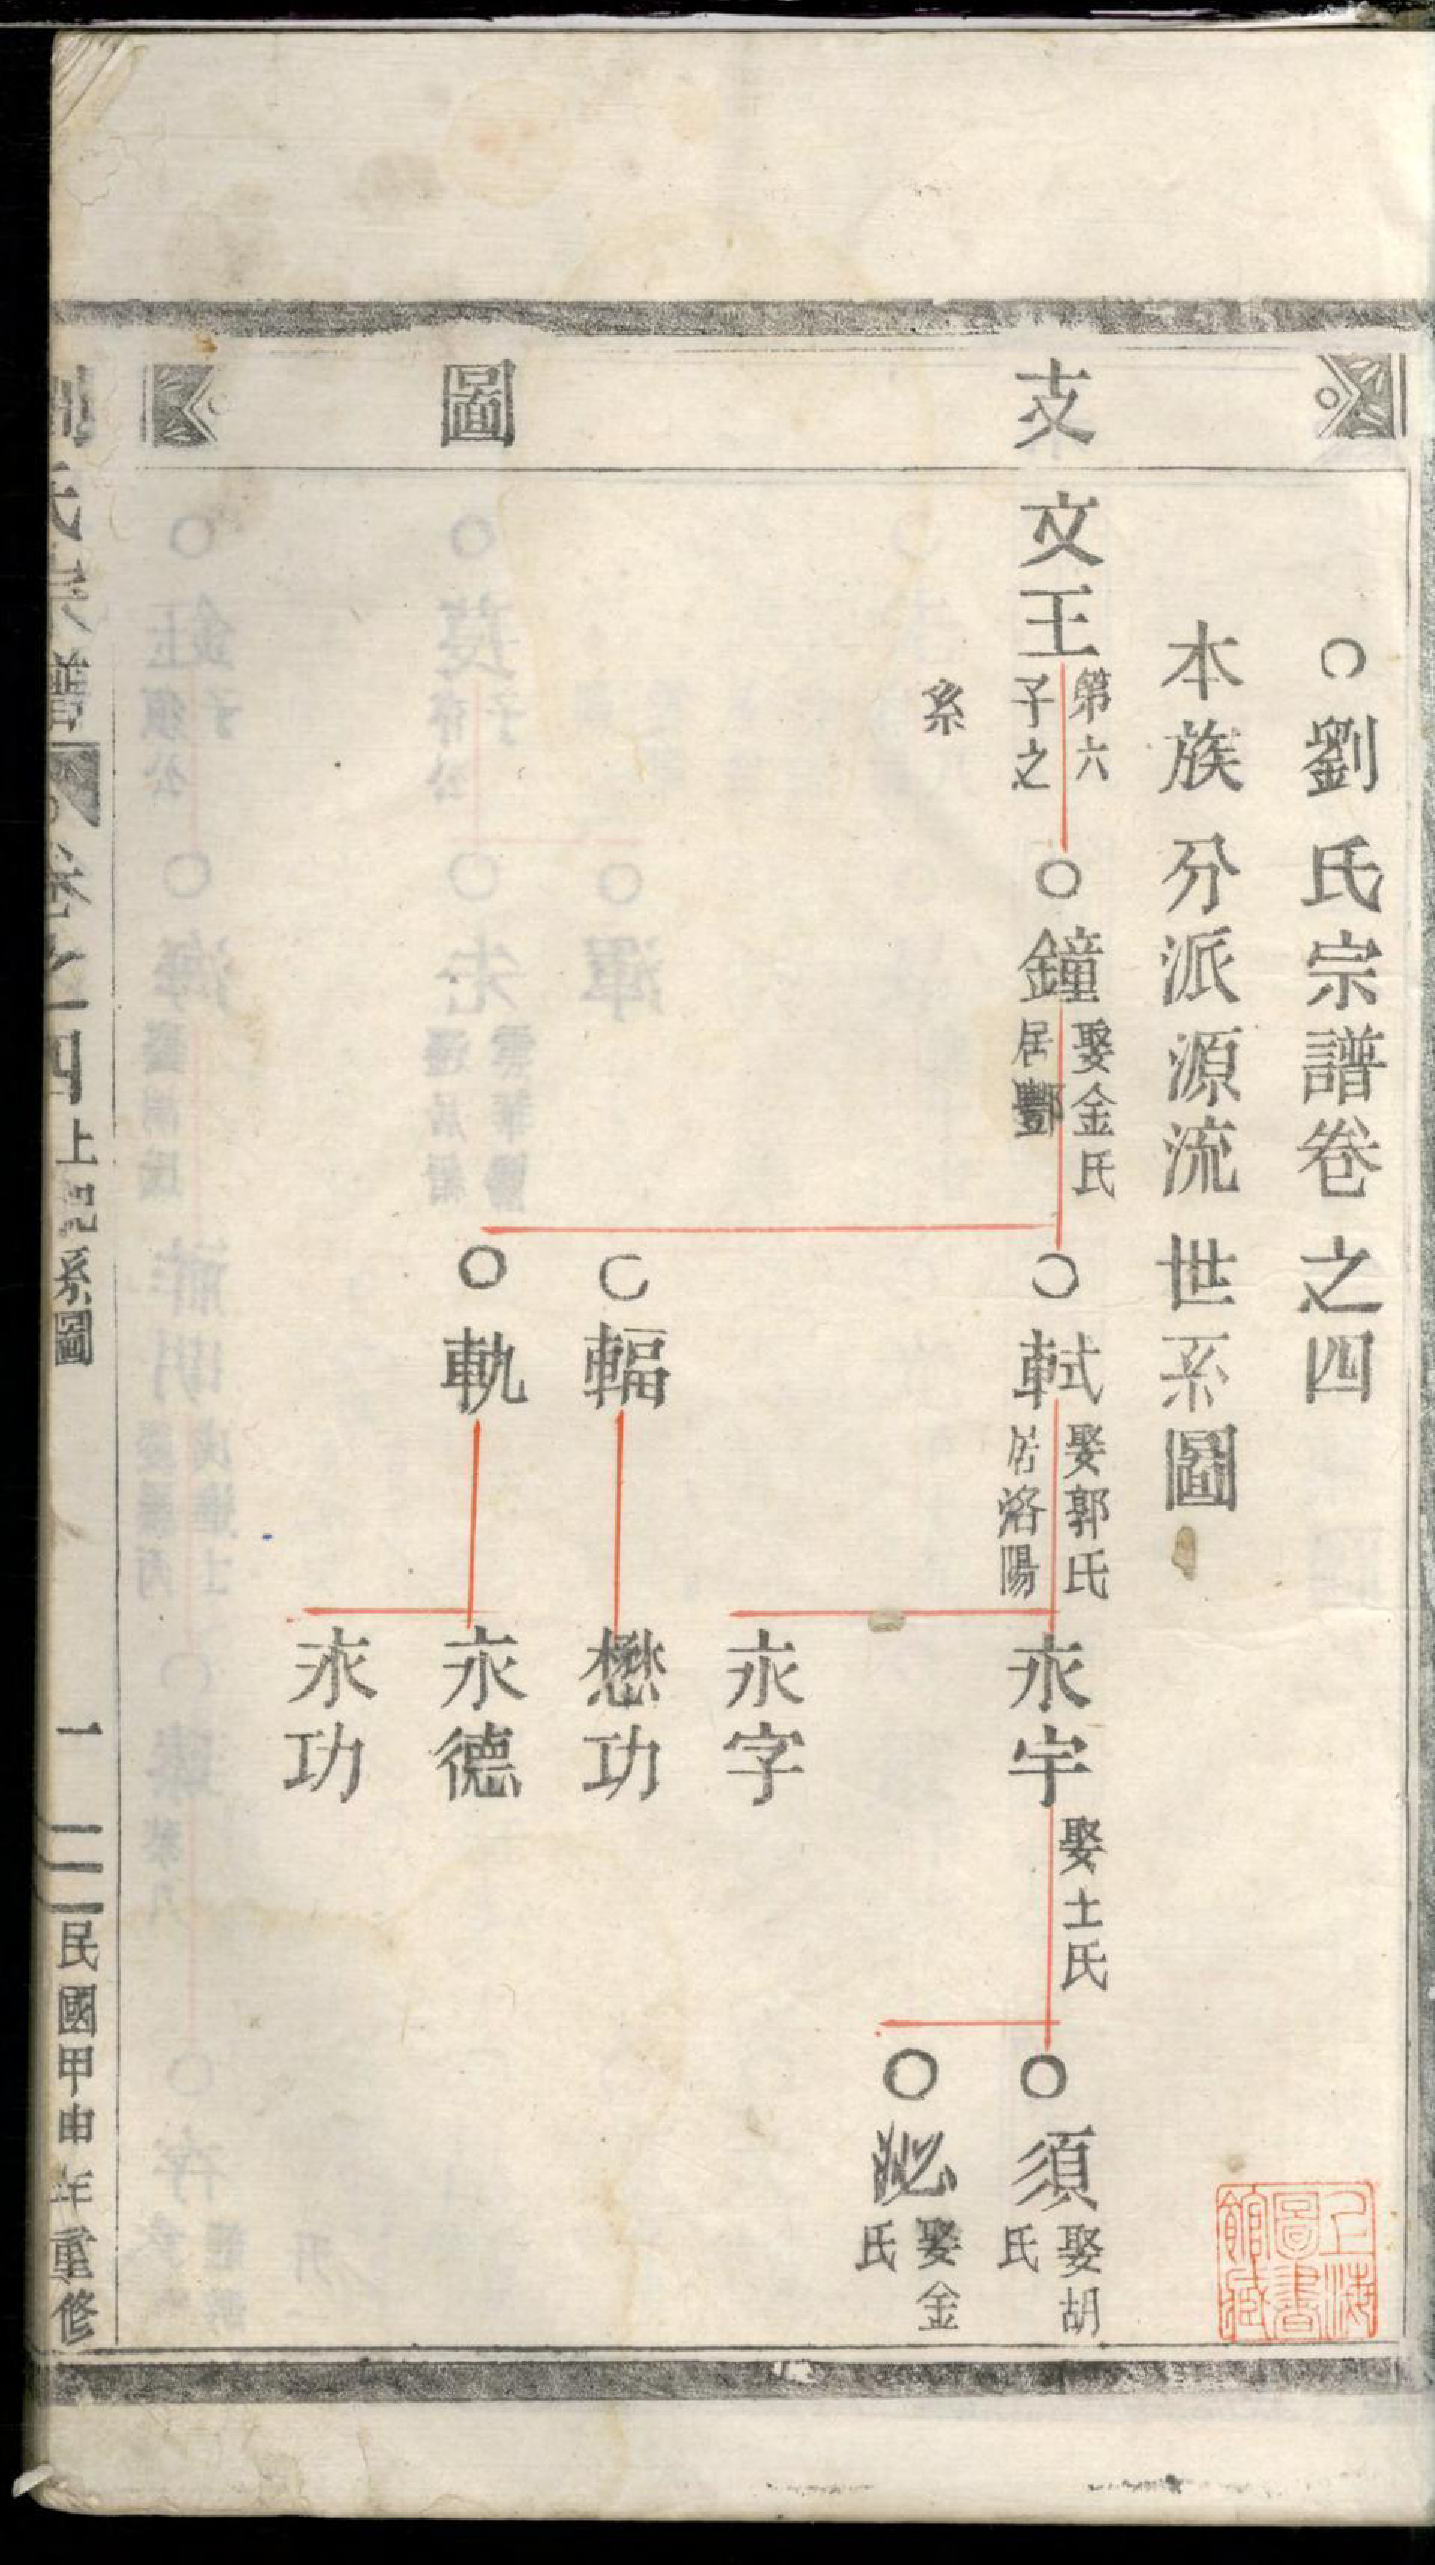 支圖
○劉氏宗譜卷之四
本族分派源流世系圖
文王
第六
子之
系
○鐘
娶金氏
居酆
○軾
娶郭氏
居洛陽
○輻
○軌
永宇
娶士氏
永字
懋功
永德
永功
○須
娶胡
氏
○泌
娶金
氏
上海
圖書
館藏
劉氏宗譜
卷之四
上記系圖
一
三
民國甲申年重修